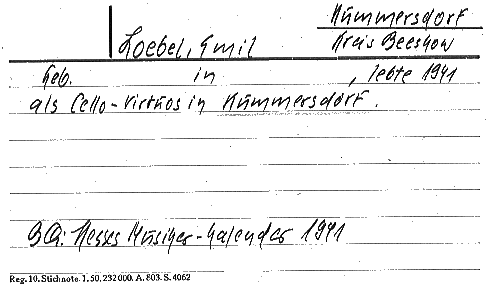 Kummersdorf
Loebel, Emil Kreis Beeskow
Geb. in , lebte 1941
als Cello-Virtuos in Kummersdorf.
BQ: Hesses Musiker-Kalender 1941
Reg. 10. Stichnote. 1. 50. 232000. A. 803. S. 4062